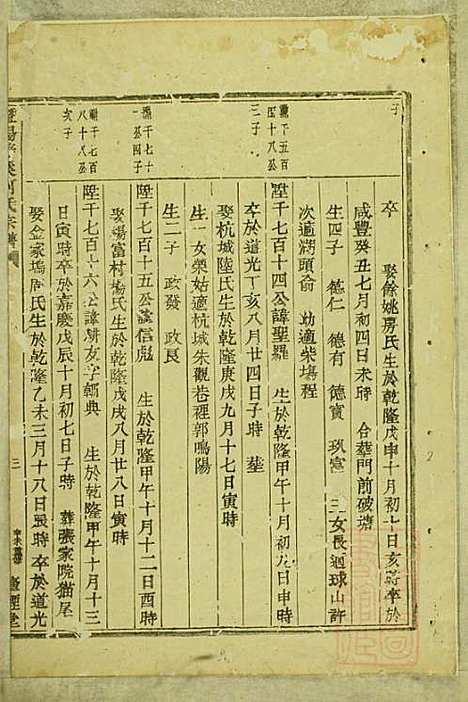 子
卒 娶餘姚房氏生於乾隆戊申十月初七日亥時卒於
咸豐癸丑七月初四日未時 合葬門前破塘
生四子 德仁 德有 德寶 三女長適球山許
次適潤頭俞 幼適柴塲程
五百
十八公
三子
陞千七百十四公諱聖羅 生於乾隆甲午十月初九日申時
卒於道光丁亥八月廿四日子時 葬
娶杭城陸氏生於乾隆庚戌九月十七日寅時
生一女榮姑適杭城朱觀巷裡郭鳴陽
生二子 政發 政良
千七十
一公四子
陞千七百十五公諱信彪 生於乾隆甲午十月十二日酉時
娶楊富村楊氏生於乾隆戊戌八月廿八日寅時
千七百
八十八公
次子
陞千七百十六公諱朝友字朝典 生於乾隆甲午十月十三
日寅時卒於嘉慶戊辰十月初七日子時 葬張家院猫尾
娶金家塢周氏生於乾隆乙未三月十八日辰時 卒於道光
何氏宗譜
三